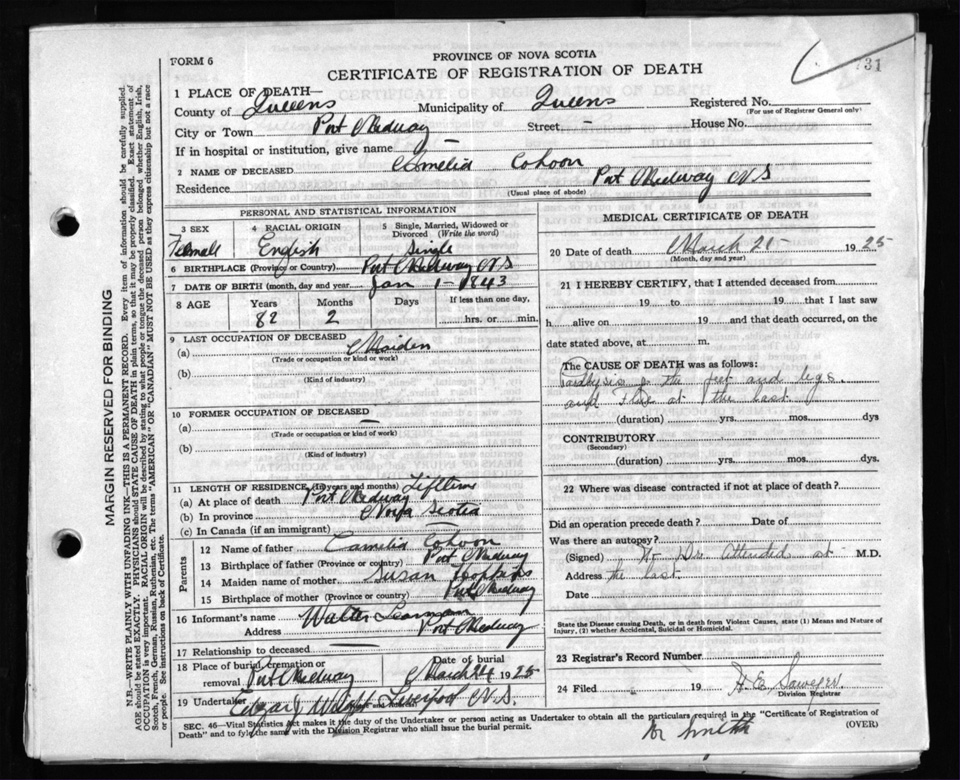 FORM 6
PROVINCE OF NOVA SCOTIA
CERTIFICATE OF REGISTRATION OF DEATH
31
1 PLACE OF DEATH—
County of Queens Municipality of Queens Registered No.
(For use of Registrar General only)
City or Town Port Medway Street — House No.
If in hospital or institution, give name —
2 NAME OF DECEASED Camelia Cohoon
Residence Port Medway N S
(Usual place of abode)
PERSONAL AND STATISTICAL INFORMATION
3 SEX
Femall
4 RACIAL ORIGIN
English
5 Single, Married, Widowed or Divorced (Write the word)
Single
6 BIRTHPLACE (Province or Country) Port Medway N S
7 DATE OF BIRTH (month, day and year) Jan 1 - 1843
8 AGE Years Months Days If less than one day,
82 2 hrs. or min.
9 LAST OCCUPATION OF DECEASED
(a) Maiden
(Trade or occupation or kind of work)
(b)
(Kind of industry)
10 FORMER OCCUPATION OF DECEASED
(a) —
(Trade or occupation or kind of work)
(b)
(Kind of industry)
11 LENGTH OF RESIDENCE (In years and months) Lifetime
(a) At place of death Port Medway
(b) In province Nova Scotia
(c) In Canada (if an immigrant)
Parents
12 Name of father Camelia Cohoon
13 Birthplace of father (Province or country) Port Medway
14 Maiden name of mother Susan Hopkins
15 Birthplace of mother (Province or country) Port Medway
16 Informant's name Walter
Address Port Medway
17 Relationship to deceased
18 Place of burial, cremation or removal Port Medway
Date of burial March 1925
19 Undertaker Liverpool N.S.
MEDICAL CERTIFICATE OF DEATH
20 Date of death March 21 - 1925
(Month, day and year)
21 I HEREBY CERTIFY, that I attended deceased from
19 to 19 that I last saw
h alive on 19 and that death occurred, on the
date stated above, at m.
The CAUSE OF DEATH was as follows:
Paralysis of the feet and legs
and Flu at the last
(duration) yrs. mos. dys
CONTRIBUTORY
(Secondary)
(duration) yrs. mos. dys.
22 Where was disease contracted if not at place of death?
Did an operation precede death? Date of
Was there an autopsy?
(Signed) No Dr Attended at M.D.
Address the last
Date
State the Disease causing Death, or in death from Violent Causes, state (1) Means and Nature of Injury, (2) whether Accidental, Suicidal or Homicidal.
23 Registrar's Record Number
24 Filed 19 H E
Division Registrar
SEC. 46—Vital Statistics Act makes it the duty of the Undertaker or person acting as Undertaker to obtain all the particulars required in the "Certificate of Registration of
Death" and to fyle the same with the Division Registrar who shall issue the burial permit.
(OVER)
Smith
MARGIN RESERVED FOR BINDING
N.B.—WRITE PLAINLY WITH UNFADING INK—THIS IS A PERMANENT RECORD. Every item of information should be carefully supplied.
AGE should be stated EXACTLY. PHYSICIANS should STATE CAUSE OF DEATH in plain terms, so that it may be properly classified. Exact statement of
OCCUPATION is very important. RACIAL ORIGIN will be described by stating to what people or tongue the deceased person belonged whether English, Irish,
Scotch, French, German, Russian, Ruthenian, etc. The terms "AMERICAN" OR "CANADIAN" MUST NOT BE USED as they express citizenship but not a race
or people. See instructions on back of Certificate.